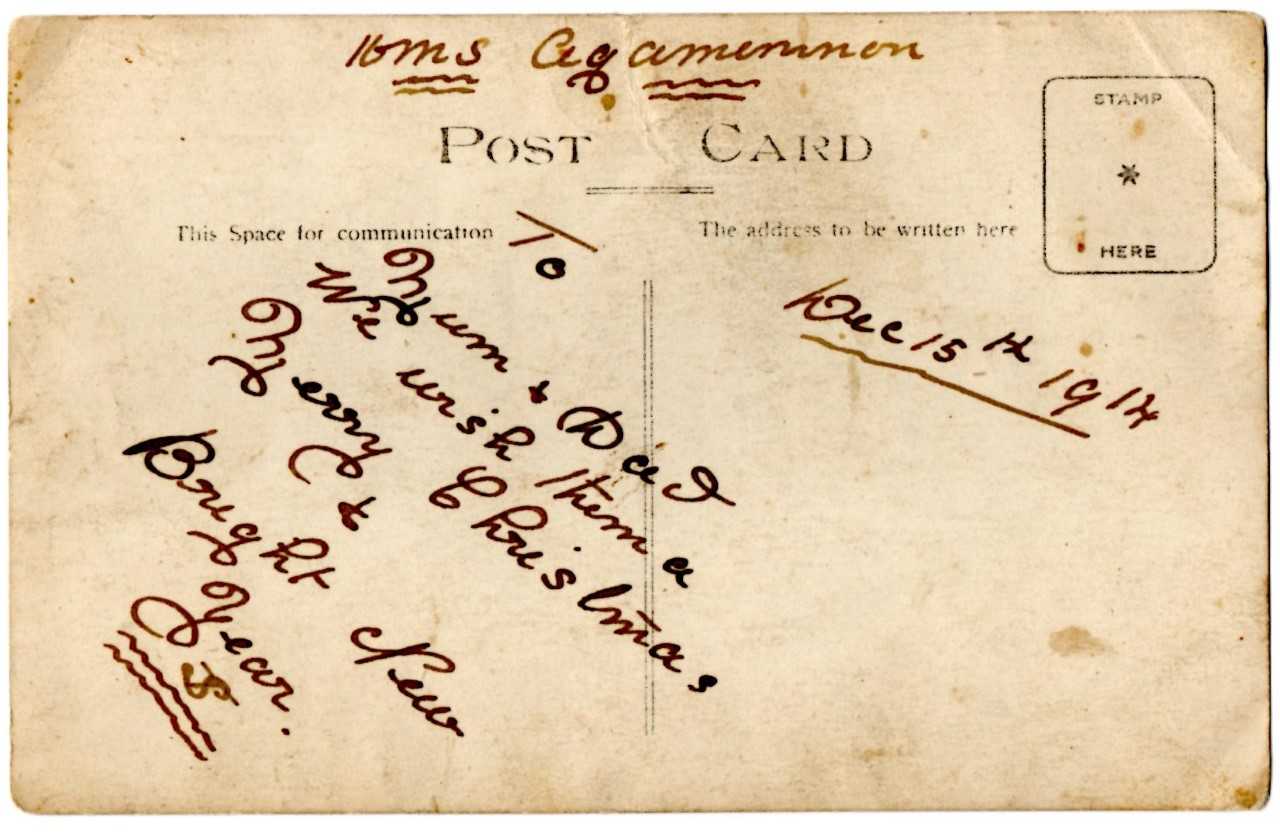 HMS Agamemnon
POST CARD
STAMP
HERE
This Space for communication
The address to be written here
To
Mum & Dad
We wish them a
Merry Christmas
&
Bright New
Year.
Dec 15th 1914